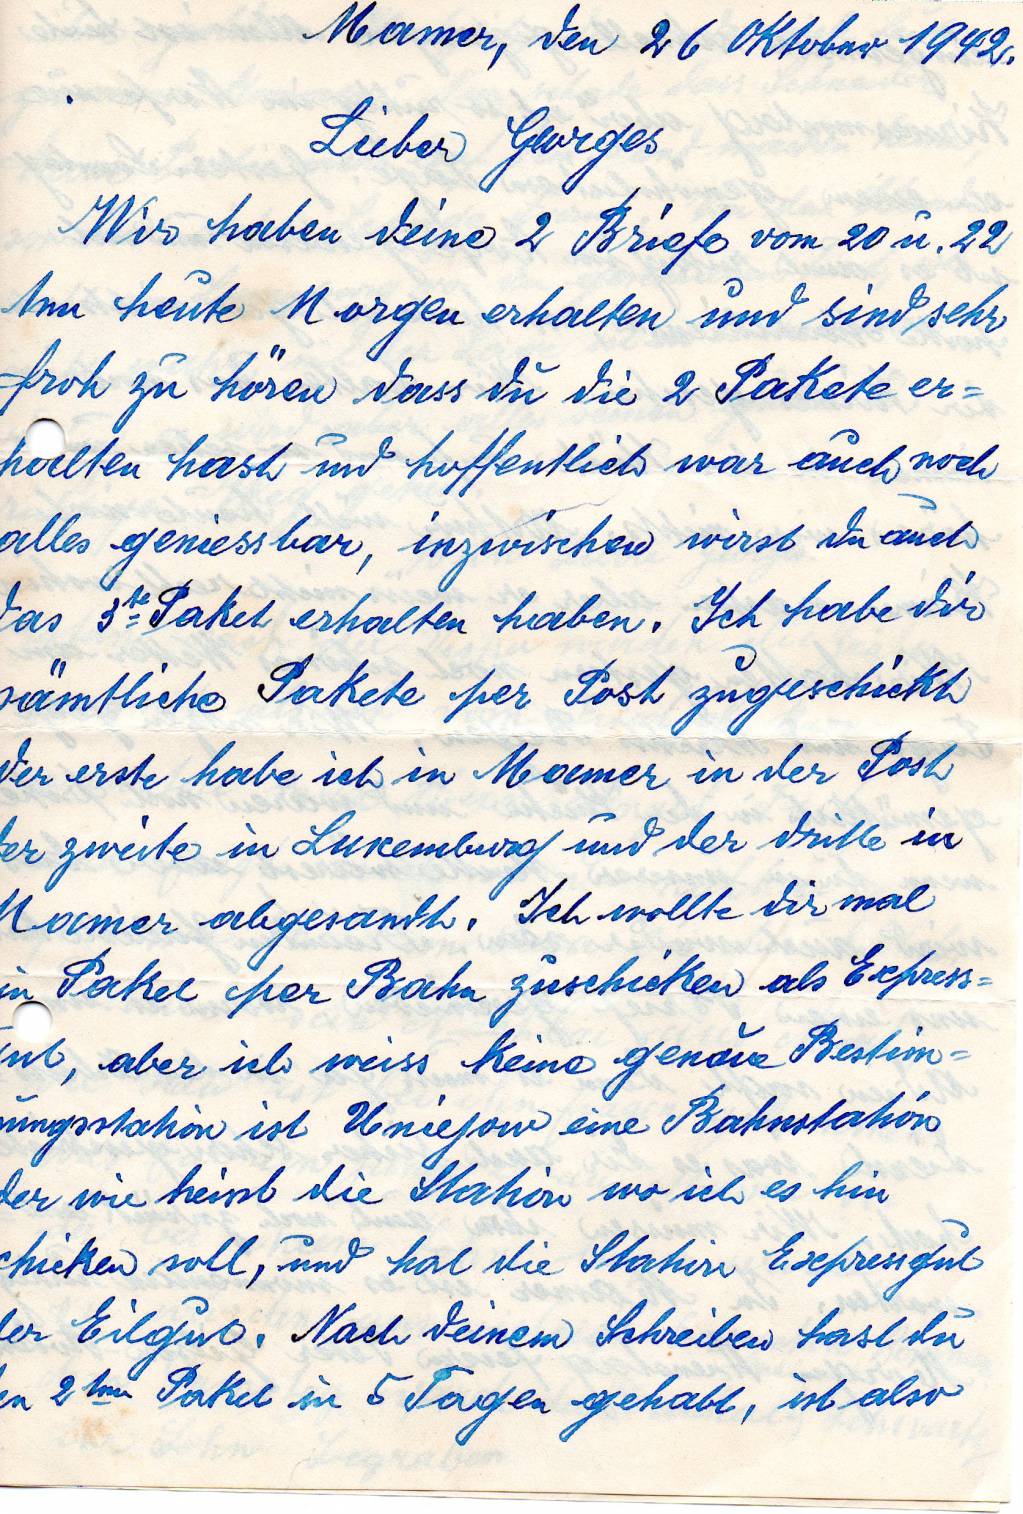 Mamer, den 26 Oktober 1942.
Lieber Georges
Wir haben deine 2 Briefe vom 20 u. 22
ten heute Morgen erhalten und sind sehr
froh zu hören dass du die 2 Pakete er=
halten hast und hoffentlich war auch noch
alles geniessbar, inzwischen wirst du auch
das 3te Paket erhalten haben. Ich habe dir
sämtliche Pakete per Post zugeschickt
der erste habe ich in Mamer in der Post
der zweite in Luxemburg und der dritte in
Mamer abgesandt. Ich wollte dir mal
ein Paket per Bahn zuschicken als Express=
gut, aber ich weiss keine genaue Bestim=
mungsstation ist Uniejow eine Bahnstation
oder wie heisst die Station wo ich es hin
schicken soll, und hat die Station Expressgut
oder Eilgut. Nach deinem Schreiben hast du
den 2ten Paket in 5 Tagen gehabt, ist also